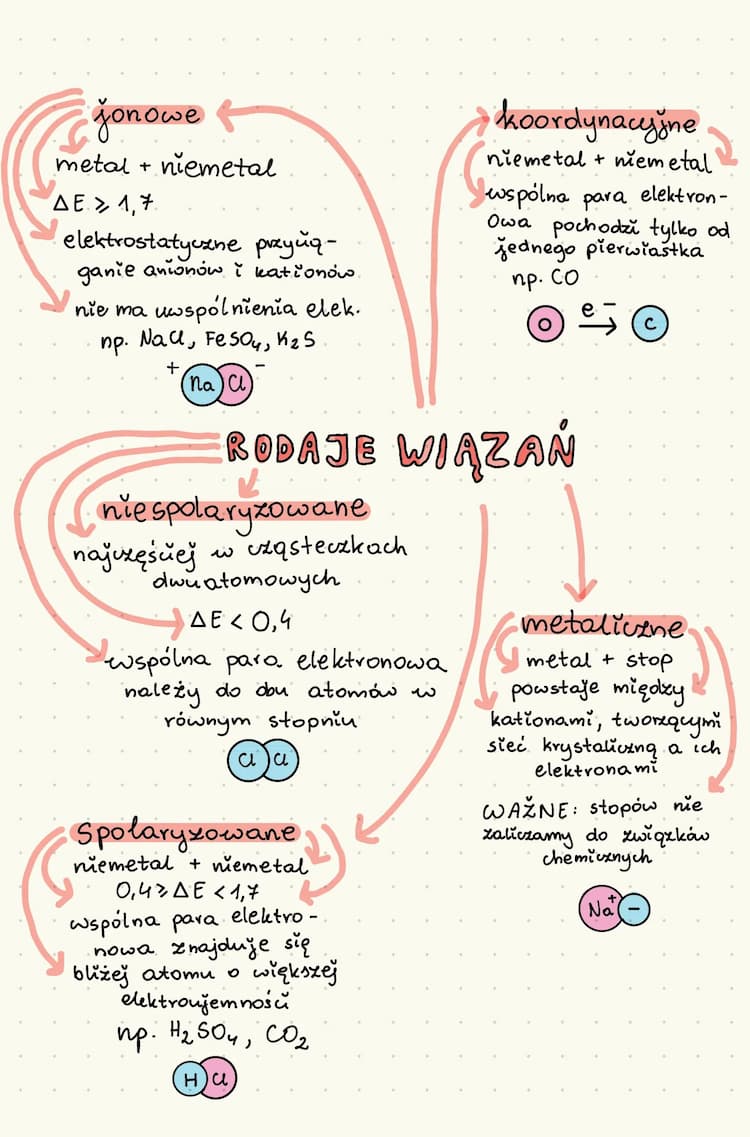 jonowe
metal + niemetal
ΔE ⩾ 1,7
elektrostatyczne przycią-
ganie anionów i kationów
nie ma uwspólnienia elek.
np. NaCl, FeSO₄, K₂S
+ Na Cl -
koordynacyjne
niemetal + niemetal
wspólna para elektron-
owa pochodzi tylko od
jednego pierwiastka
np. CO
O e⁻ → C
RODAJE WIĄZAŃ
niespolaryzowane
najczęściej w cząsteczkach
dwuatomowych
ΔE < 0,4
wspólna para elektronowa
należy do obu atomów w
równym stopniu
Cl Cl
metaliczne
metal + stop
powstaje między
kationami, tworzącymi
sieć krystaliczną a ich
elektronami
WAŻNE: stopów nie
zaliczamy do związków
chemicznych
Na⁺ −
spolaryzowane
niemetal + niemetal
0,4 ⩾ ΔE < 1,7
wspólna para elektro-
nowa znajduje się
bliżej atomu o większej
elektroujemności
np. H₂SO₄, CO₂
H Cl